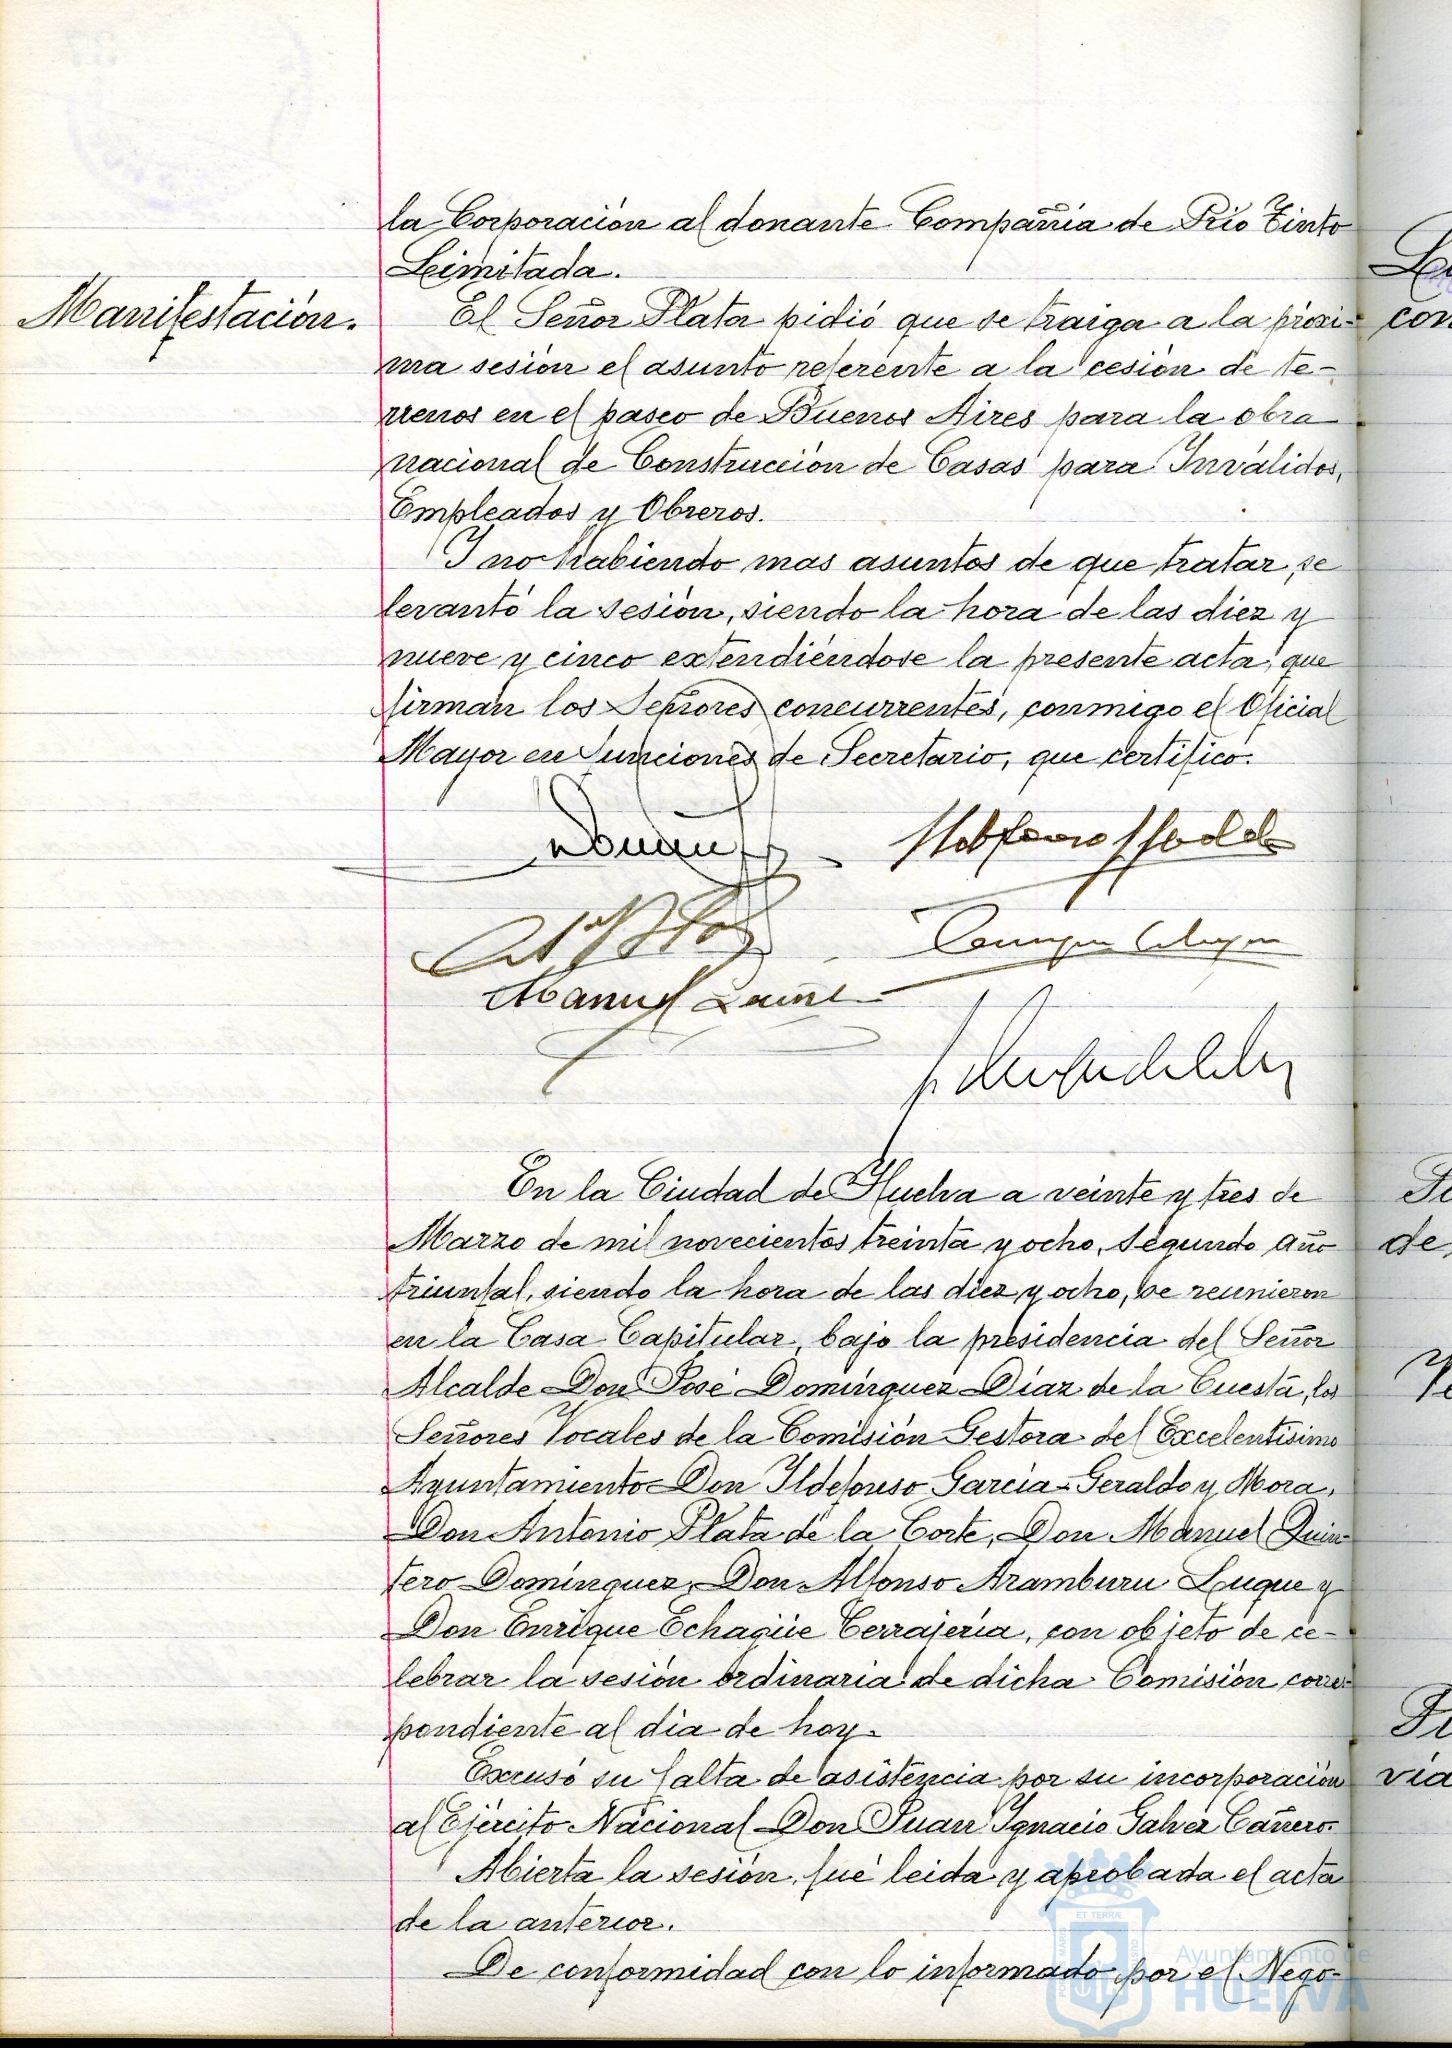 la Corporación al donante Compañía de Rio Tinto
Limitada.
Manifestación.
El Señor Plata pidió que se traiga a la proxi-
ma sesión el asunto referente a la cesión de te-
rrenos en el paseo de Buenos Aires para la obra
nacional de Construcción de Casas para Inválidos,
Empleados y Obreros.
Y no habiendo mas asuntos de que tratar, se
levantó la sesión, siendo la hora de las diez y
nueve y cinco extendiéndose la presente acta, que
firman los Señores concurrentes, conmigo el Oficial
Mayor en funciones de Secretario, que certifico.
Manuel
En la Ciudad de Huelva a veinte y tres de
Marzo de mil novecientos treinta y ocho, Segundo Año
triunfal, siendo la hora de las diez y ocho, se reunieron
en la Casa Capitular, bajo la presidencia del Señor
Alcalde Don José Domínguez Díaz de la Cuesta, los
Señores Vocales de la Comisión Gestora del Excelentísimo
Ayuntamiento Don Ildefonso García-Geraldo y Mora,
Don Antonio Plata de la Corte, Don Manuel Quin-
tero Domínguez, Don Alfonso Aramburu Luque y
Don Enrique Echagüe Cerrajería, con objeto de ce-
lebrar la sesión ordinaria de dicha Comisión corres-
pondiente al día de hoy.
Excusó su falta de asistencia por su incorporación
al Ejército Nacional Don Juan Ignacio Galvez Cañero.
Abierta la sesión, fué leida y aprobada el acta
de la anterior.
De conformidad con lo informado por el Nego-
con
de
via
Ayuntamiento de
HUELVA